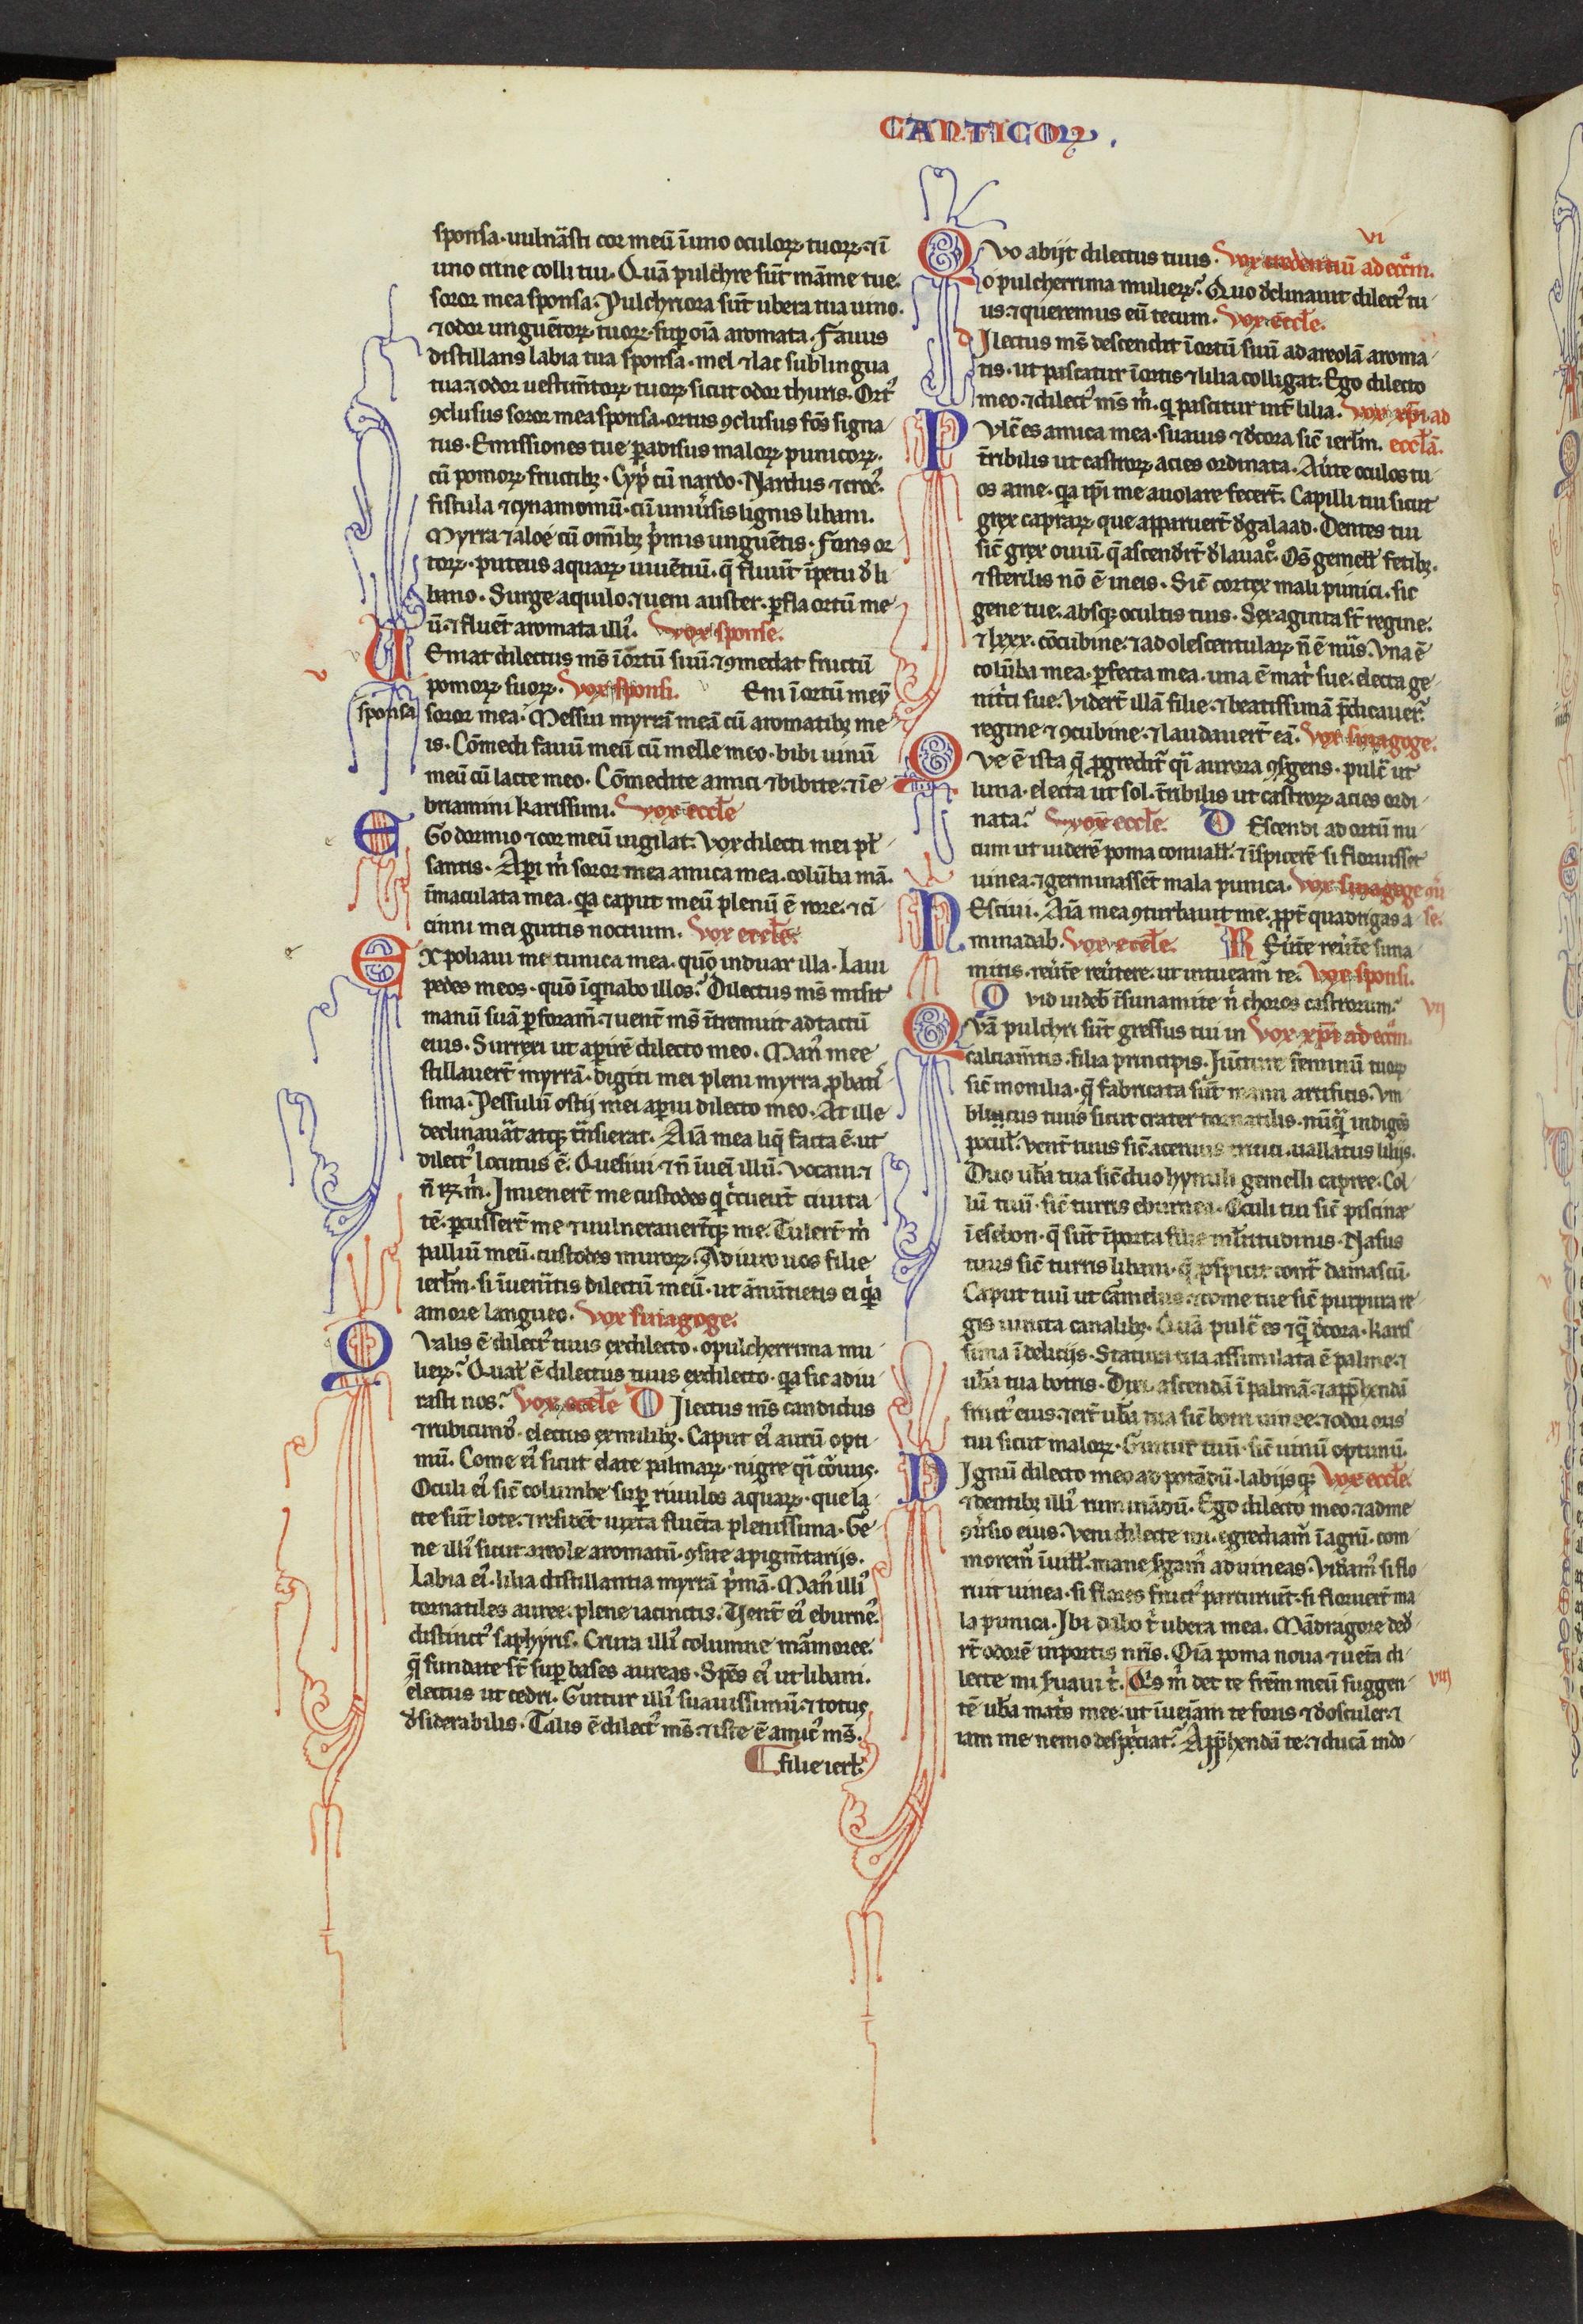 CANTICOꝜ.
sponsa. uulnãsti cor meũ ĩ uno oculoꝝ tuoꝝ. ⁊ ĩ
uno crine colli tui. Quã pulchre sũt mãme tue.
soror mea sponsa. Pulchriora sũt ubera tua uino.
⁊ odor unguẽtoꝝ tuoꝝ. suꝑ oĩa aromata. Fauus
distillans labia tua sponsa. mel ⁊ lac sub lingua
tua ⁊ odor uestim̃toꝝ tuoꝝ sicut odor thuris. Ort᷒
ꝯclusus soror mea sponsa. ortus ꝯclusus fõs signa
tus. Emissiones tue ꝑadisus maloꝝ punicoꝝ.
cũ pomoꝝ fructibꝫ. Cyp̃ cũ nardo. Nardus ⁊ croc᷒.
fistula ⁊ cynamomũ. cũ uniũsis lignis libani.
Myrra ⁊ aloe cũ om̃ibꝫ p̃mis unguẽtis. Fons or
toꝝ. puteus aquaꝝ uiuẽtiũ. q̃ fluũt ĩpetu d̃ li
bano. Surge aquilo. ⁊ ueni auster. ꝑfla ortũ me
ũ. ⁊ fluẽt aromata illi᷒. vox sponse.
Eniat dilectus mẽs ĩ ortũ suũ. ⁊ ꝯmedat fructũ
pomoꝝ suoꝝ. vox sponsi. Eni ĩ ortũ meũ
sponsa soror mea. Messui myrrã meã cũ aromatibꝫ me
is. Cõmedi fauũ meũ cũ melle meo. bibi uinũ
meũ cũ lacte meo. Cõmedite amici ⁊ bibite. ⁊ ĩe
briamini karissimi. vox eccl̃e
EGo dormio ⁊ cor meũ uigilat. Vox dilecti mei pl̃
santis. Aꝑi m̃ soror mea amica mea. colũba mã.
ĩmaculata mea. q̃a caput meũ plenũ ẽ rore. ⁊ cĩ
cinni mei guttis noctium. vox eccl̃e.
EXpoliaui me tunica mea. quõ induar illa. Laui
pedes meos. quõ ĩq̃nabo illos. Dilectus mẽs misit
manũ suã ꝑ foram̃. ⁊ uent̃ mẽs ĩtremuit ad tactũ
eius. Surrexi ut aꝑirẽ dilecto meo. Man᷒ mee
stillauert̃ myrrã. digiti mei pleni myrra ꝓbatis
sima. Pessulũ ostij mei aꝑui dilecto meo. At ille
declinauãt atqꝫ tñsierat. Aĩa mea liq̃ facta ẽ. ut
dilect᷒ locutus ẽ. Quesiui ⁊ ñ ĩueĩ illũ. vocaui ⁊
ñ rꝝ. m̃. Inuenert̃ me custodes q̃ c̃cueũt ciuita
tẽ. ꝑcussert̃ me ⁊ uulnerauert̃qꝫ me. Tulert̃ m̃
palliũ meũ. custodes muroꝝ. Adiuro uos filie
ierl̃m. si ĩuenĩtis dilectũ meũ. ut ãnũtietis ei q̃a
amore langueo. vox sinagoge.
Qvalis ẽ dilect᷒ tuus ex dilecto. o pulcherrima mu
lieꝝ. Qual̃ ẽ dilectus tuus ex dilecto. q̃a sic adiu
rasti nos. vox eccl̃e DIlectus mẽs candidus
⁊ rubicund᷒. electus ex milibꝫ. Caput ei᷒ aurũ opti
mũ. Come ei᷒ sicut elate palmaꝝ. nigre q̃i cõruus.
Oculi ei᷒ sic̃ columbe suꝑ riuulos aquaꝝ. que la
cte sũt lote. ⁊ residẽt iuxta fluẽta plenissima. Ge
ne illi᷒ sicut areole aromatũ. ꝯsite a pigm̃tarijs.
Labia ei᷒. lilia distillantia myrrã p̃mã. Man᷒ illi᷒
tornatiles auree. plene iacinctis. Vent̃ ei᷒ eburne᷒.
distinct᷒ saphyris. Crura illi᷒ columne mãmoree.
q̃ fundate st̃ suꝑ bases aureas. Spẽs ei᷒ ut libani.
electus ut cedri. Guttur illi᷒ suauissimũ. ⁊ totus
d̃siderabilis. Talis ẽ dilect᷒ mẽs. ⁊ iste ẽ amic᷒ mẽs.
filie ierl̃.
vi
QVo abijt dilectus tuus. ad eccl̃im.
o pulcherrima mulieꝝ. Quo d̃clinauit dilect᷒ tu
us. ⁊ queremus eũ tecum. vox eccl̃e.
DIlectus mẽs descendit ĩ ortũ suũ ad areolã aroma
tis. ut pascatur ĩ ortis ⁊ lilia colligat. Ego dilecto
meo. ⁊ dilect᷒ mẽs m̃. q̃ pascitur int̃ lilia. vox xp̃i ad
PVlc̃ es amica mea. suauis ⁊ d̃cora sic̃ ierl̃m. eccl̃ã.
t̃ribilis ut castroꝝ acies ordinata. Aũte oculos tu
os a me. q̃a ip̃i me auolare fecert̃. Capilli tui sicut
grex capraꝝ que apparuert̃ d̃ galaad. Dentes tui
sic̃ grex ouiũ. q̃ ascendert̃ d̃ lauac᷒. Oẽs gemell̃ fetibꝫ.
⁊ sterilis nõ ẽ ĩ eis. Sic̃ cortex mali punici. sic
gene tue. absqꝫ ocultis tuis. Sexaginta st̃ regine.
⁊ lxxx. cõcubine. ⁊ adolescentulaꝝ ñ ẽ nũs. Vna ẽ
colũba mea. ꝑfecta mea. una ẽ mat̃ sue. electa ge
nit̃ci sue. Vidert̃ illã filie. ⁊ beatissimã p̃dicauer̃.
regine ⁊ ꝯcubine. ⁊ laudauert̃ eã. vox sinagoge.
QVe ẽ ista q̃ ꝓgredit᷒ q̃i aurora ꝯsgens. pulc̃ ut
luna. electa ut sol. t̃ribilis ut castroꝝ acies ordi
nata. vox eccl̃e. DEscendi ad ortũ nu
cum ut uiderẽ poma conuall̃. ⁊ ĩspicerẽ si floruisset
uinea. ⁊ germinassẽt mala punica. vox sinagoge
NEsciui. Aĩa mea ꝯturbauit me. ꝓpt̃ quadrigas a
minadab. vox eccl̃e. REũte reũte suna
mitis. reũte reũtere. ut intueam̃ te. vox sponsi.
QVid uideb᷒ ĩ sunamite ñ choros castrorum. vij
QVã pulchri sũt gressus tui in vox xp̃i ad eccl̃im.
calciam̃tis. filia principis. Iũcture feminũ tuoꝝ
sic̃ monilia. q̃ fabricata sũt manu artificis. Vm
bilicus tuus sicut crater tornatilis. nũq̃ indigẽs
pocul̃. Vent̃ tuus sic̃ aceruus tritici. uallatus lilijs.
Duo ub̃a tua sic̃ duo hynuli gemelli capree. Col
lũ tuũ. sic̃ turris eburnea. Oculi tui sic̃ piscinæ
ĩ esebon. q̃ sũt ĩ porta filie ml̃titudinis. Nasus
tuus sic̃ turris libani. q̃ ꝓspicit cont̃ damascũ.
Caput tuũ ut cãmelus. ⁊ come tue sic̃ purpura re
gis uincta canalibꝫ. Quã pulc̃ es ⁊ q̃ d̃cora. karis
sima ĩ delicijs. Statura tua assimilata ẽ palme. ⁊
ub̃a tua botris. Dixi ascendã ĩ palmã. ⁊ app̃hendã
fruct᷒ eius. ⁊ ert̃ ub̃a tua sic̃ botri uinee. ⁊ odor oris
tui sicut maloꝝ. Guttur tuũ. sic̃ uinũ optimũ.
DIgnũ dilecto meo ad potãdũ. labijsqꝫ vox eccl̃e.
⁊ dentibꝫ illi᷒ ruminãdũ. Ego dilecto meo. ⁊ ad me
ꝯũsio eius. Veni dilecte mi. egrediam̃ ĩ agrũ. com
morem̃ ĩ uill̃. mane sgam̃ ad uineas. Vidam̃ si flo
ruit uinea. si flores fruct᷒ parturiũt. si floruert̃ ma
la punica. Ibi dabo t̃ ubera mea. Mãdragore ded̃
rt̃ odorẽ in portis nr̃is. Oĩa poma noua ⁊ uet̃a di
lecte mi s̃uaui t̃. Qi᷒s m̃ det te fr̃em meũ suggen viij
tẽ ub̃a mat̃s mee. ut ĩueĩam te foris ⁊ d̃osculer. ⁊
iam me nemo despiciat. App̃hendã te. ⁊ ducã in do